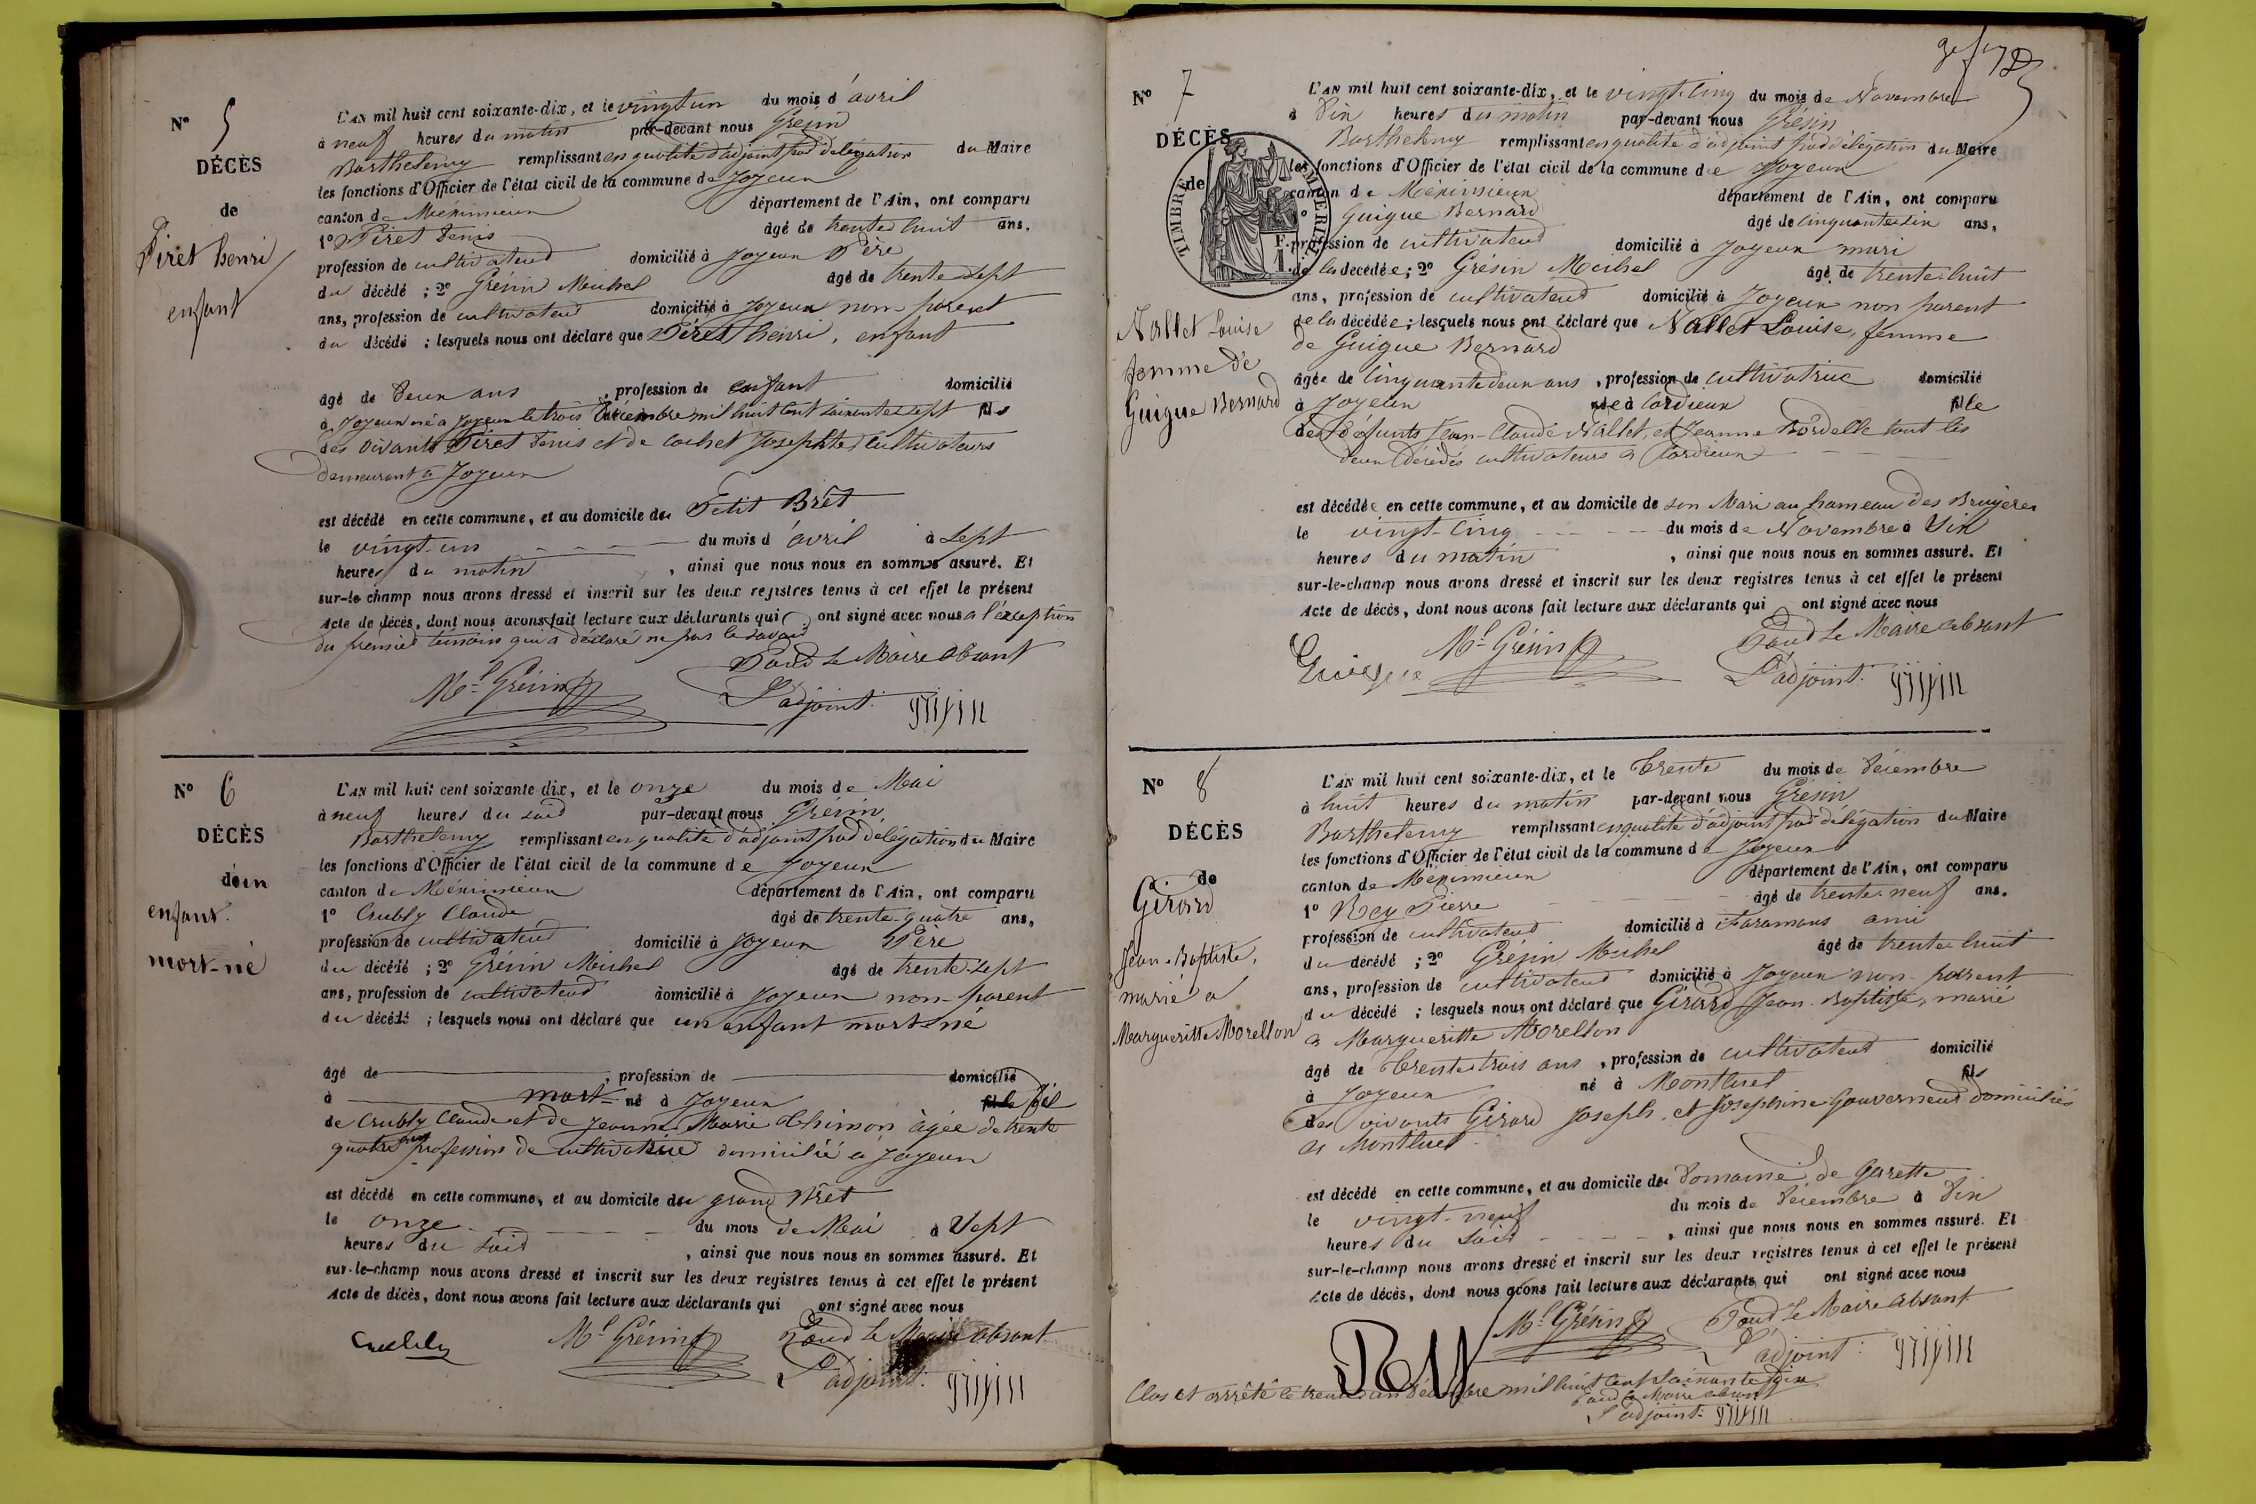 N° 5
DÉCÈS
de
Piret henri
enfant
L'AN mil huit cent soixante-dix, et le vingt un du mois d'avril
à neuf heures du matin par-devant nous Grésin
Barthelemy remplissant en qualité d'adjoint par délégation du Maire
les fonctions d'Officier de l'état civil de la commune de Joyeux
canton de Méximieux département de l'Ain, ont comparu
1° Piret Denis âgé de trente huit ans,
profession de cultivateur domicilié à Joyeux Père
du décédé ; 2° Grésin Michel âgé de trente sept
ans, profession de cultivateur domicilié à Joyeux non parent
du décédé ; lesquels nous ont déclaré que Piret henri, enfant
âgé de deux ans , profession de enfant domicilié
à Joyeux né à Joyeux le trois Décembre mil huit cent soixante sept fils
des vivants Piret Denis et de cochet Josephte cultivateurs
demeurant à Joyeux
est décédé en cette commune, et au domicile du Petit Brêt
le vingt-un du mois d'avril à Sept
heures du matin , ainsi que nous nous en sommes assuré. Et
sur-le champ nous avons dressé et inscrit sur les deux registres tenus à cet effet le présent
Acte de décès, dont nous avons fait lecture aux déclarants qui ont signé avec nous a l'éxception
du premier temoin qui a déclaré ne pas le savoir
Pour le Maire absant
Ml Grésin L'adjoint: grisin
N° 6
DÉCÈS
d'un
enfant
mort-né
L'AN mil huit cent soixante dix, et le onze du mois de Mai
à neuf heures du soir par-devant nous Grésin
Barthelemy remplissant en qualité d'adjoint par délégation du Maire
les fonctions d'Officier de l'état civil de la commune de Joyeux
canton de Méximieux département de l'Ain, ont comparu
1° Crubly Claude âgé de trente-quatre ans,
profession de cultivateur domicilié à Joyeux Père
du décédé ; 2° Grésin Michel âgé de trente-sept
ans, profession de cultivateur domicilié à Joyeux non-parent
du décédé ; lesquels nous ont déclaré que un enfant mort-né
âgé de , profession de domicilié
à mort- né à Joyeux fil
de Crubly Claude et de Jeanne Marie Chimon âgée de trente
quatre ans profession de cultivatrice domicilié à Joyeux
est décédé en cette commune, et au domicile du grand Brêt
le onze du mois de Mai à Sept
heures du soir , ainsi que nous nous en sommes assuré. Et
sur-le-champ nous avons dressé et inscrit sur les deux registres tenus à cet effet le présent
Acte de décès, dont nous avons fait lecture aux déclarants qui ont signé avec nous
Ml Grésin Pour le Maire absant
L'adjoint: grisin
N° 7
DÉCÈS
de
TIMBRE
Nallet Louise
femme de
Guigue Bernard
L'AN mil huit cent soixante-dix, et le vingt-cinq du mois de Novembre
à Dix heures du matin par-devant nous Grésin
Barthelemy remplissant en qualité d'adjoint par délégation du Maire
les fonctions d'Officier de l'état civil de la commune de Joyeux
canton de Méximieux département de l'Ain, ont comparu
Guigue Bernard âgé de cinquante six ans,
profession de cultivateur domicilié à Joyeux mari
de la décédée; 2° Grésin Michel âgé de trente-huit
ans, profession de cultivateur domicilié à Joyeux non parent
de la décédée; lesquels nous ont déclaré que Nallet Louise, femme
de Guigue Bernard
âgée de cinquante deux ans , profession de cultivatrice domicilié
à Joyeux née à Cordieux fille
des défunts Jean-Claude Nallet, et Jeanne tous les
deux décédés cultivateurs à Cordieux
est décédée en cette commune, et au domicile de son Mari au hameau des Bruyères
le vingt-cinq du mois de Novembre à Six
heures du matin , ainsi que nous nous en sommes assuré. Et
sur-le-champ nous avons dressé et inscrit sur les deux registres tenus à cet effet le présent
Acte de décès, dont nous avons fait lecture aux déclarants qui ont signé avec nous
Guigue Ml Grésin Pour le Maire absant
L'adjoint: grisin
N° 8
DÉCÈS
de
Girard
Jean-Baptiste,
marié à
Margueritte Morellon
L'AN mil huit cent soixante-dix, et le trente du mois de Décembre
à huit heures du matin par-devant nous Grésin
Barthelemy remplissant en qualité d'adjoint par délégation du Maire
les fonctions d'Officier de l'état civil de la commune de Joyeux
canton de Méximieux département de l'Ain, ont comparu
1° Rey Pierre âgé de trente-neuf ans.
profession de cultivateur domicilié à Faramans ami
du décédé ; 2° Grésin Michel âgé de trente huit
ans, profession de cultivateur domicilié à Joyeux non-parent
du décédé ; lesquels nous ont déclaré que Girard Jean-Baptiste, marié
à Margueritte Morellon
âgé de trente trois ans , profession de cultivateur domicilié
à Joyeux né à Montluel fils
des vivants Girard Joseph, et Josephine Gouverneur domiciliés
à Montluel
est décédé en cette commune, et au domicile du Domaine de Garette
le vingt-neuf du mois de Décembre à Six
heures du soir , ainsi que nous nous en sommes assuré. Et
sur-le-champ nous avons dressé et inscrit sur les deux registres tenus à cet effet le présent
Acte de décès, dont nous avons fait lecture aux déclarants qui ont signé avec nous
Rey Ml Grésin Pour le Maire absant
L'adjoint: grisin
Clos et arrêté le trente un Décembre mil huit cent soixante dix
Pour le Maire absant
L'adjoint: grisin